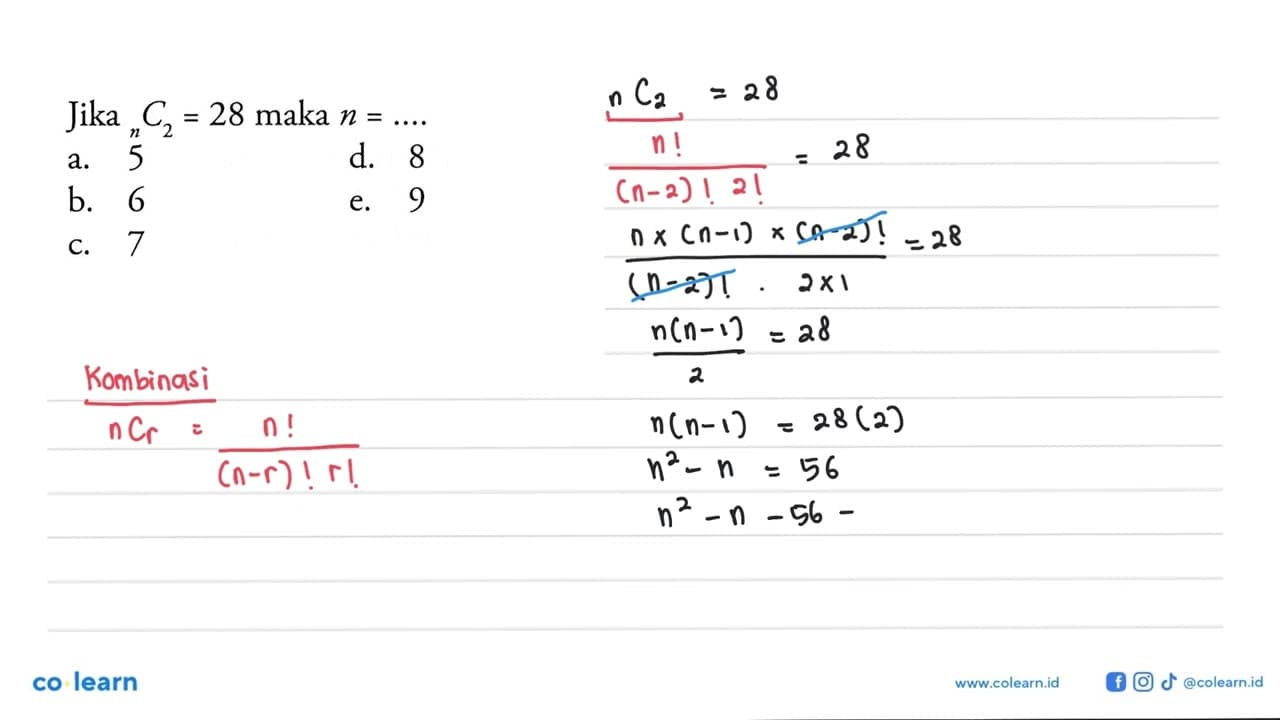 Jika nC2 = 28 maka n = ....
a. 5 d. 8
b. 6 e. 9
c. 7
Kombinasi
nCr = n!
(n-r)! r!
nC2 = 28
n! = 28
(n-2)! 2!
n x (n-1) x (n-2)! = 28
(n-2)! . 2x1
n(n-1) = 28
2
n(n-1) = 28(2)
n² - n = 56
n² - n - 56 -
co learn
www.colearn.id @colearn.id